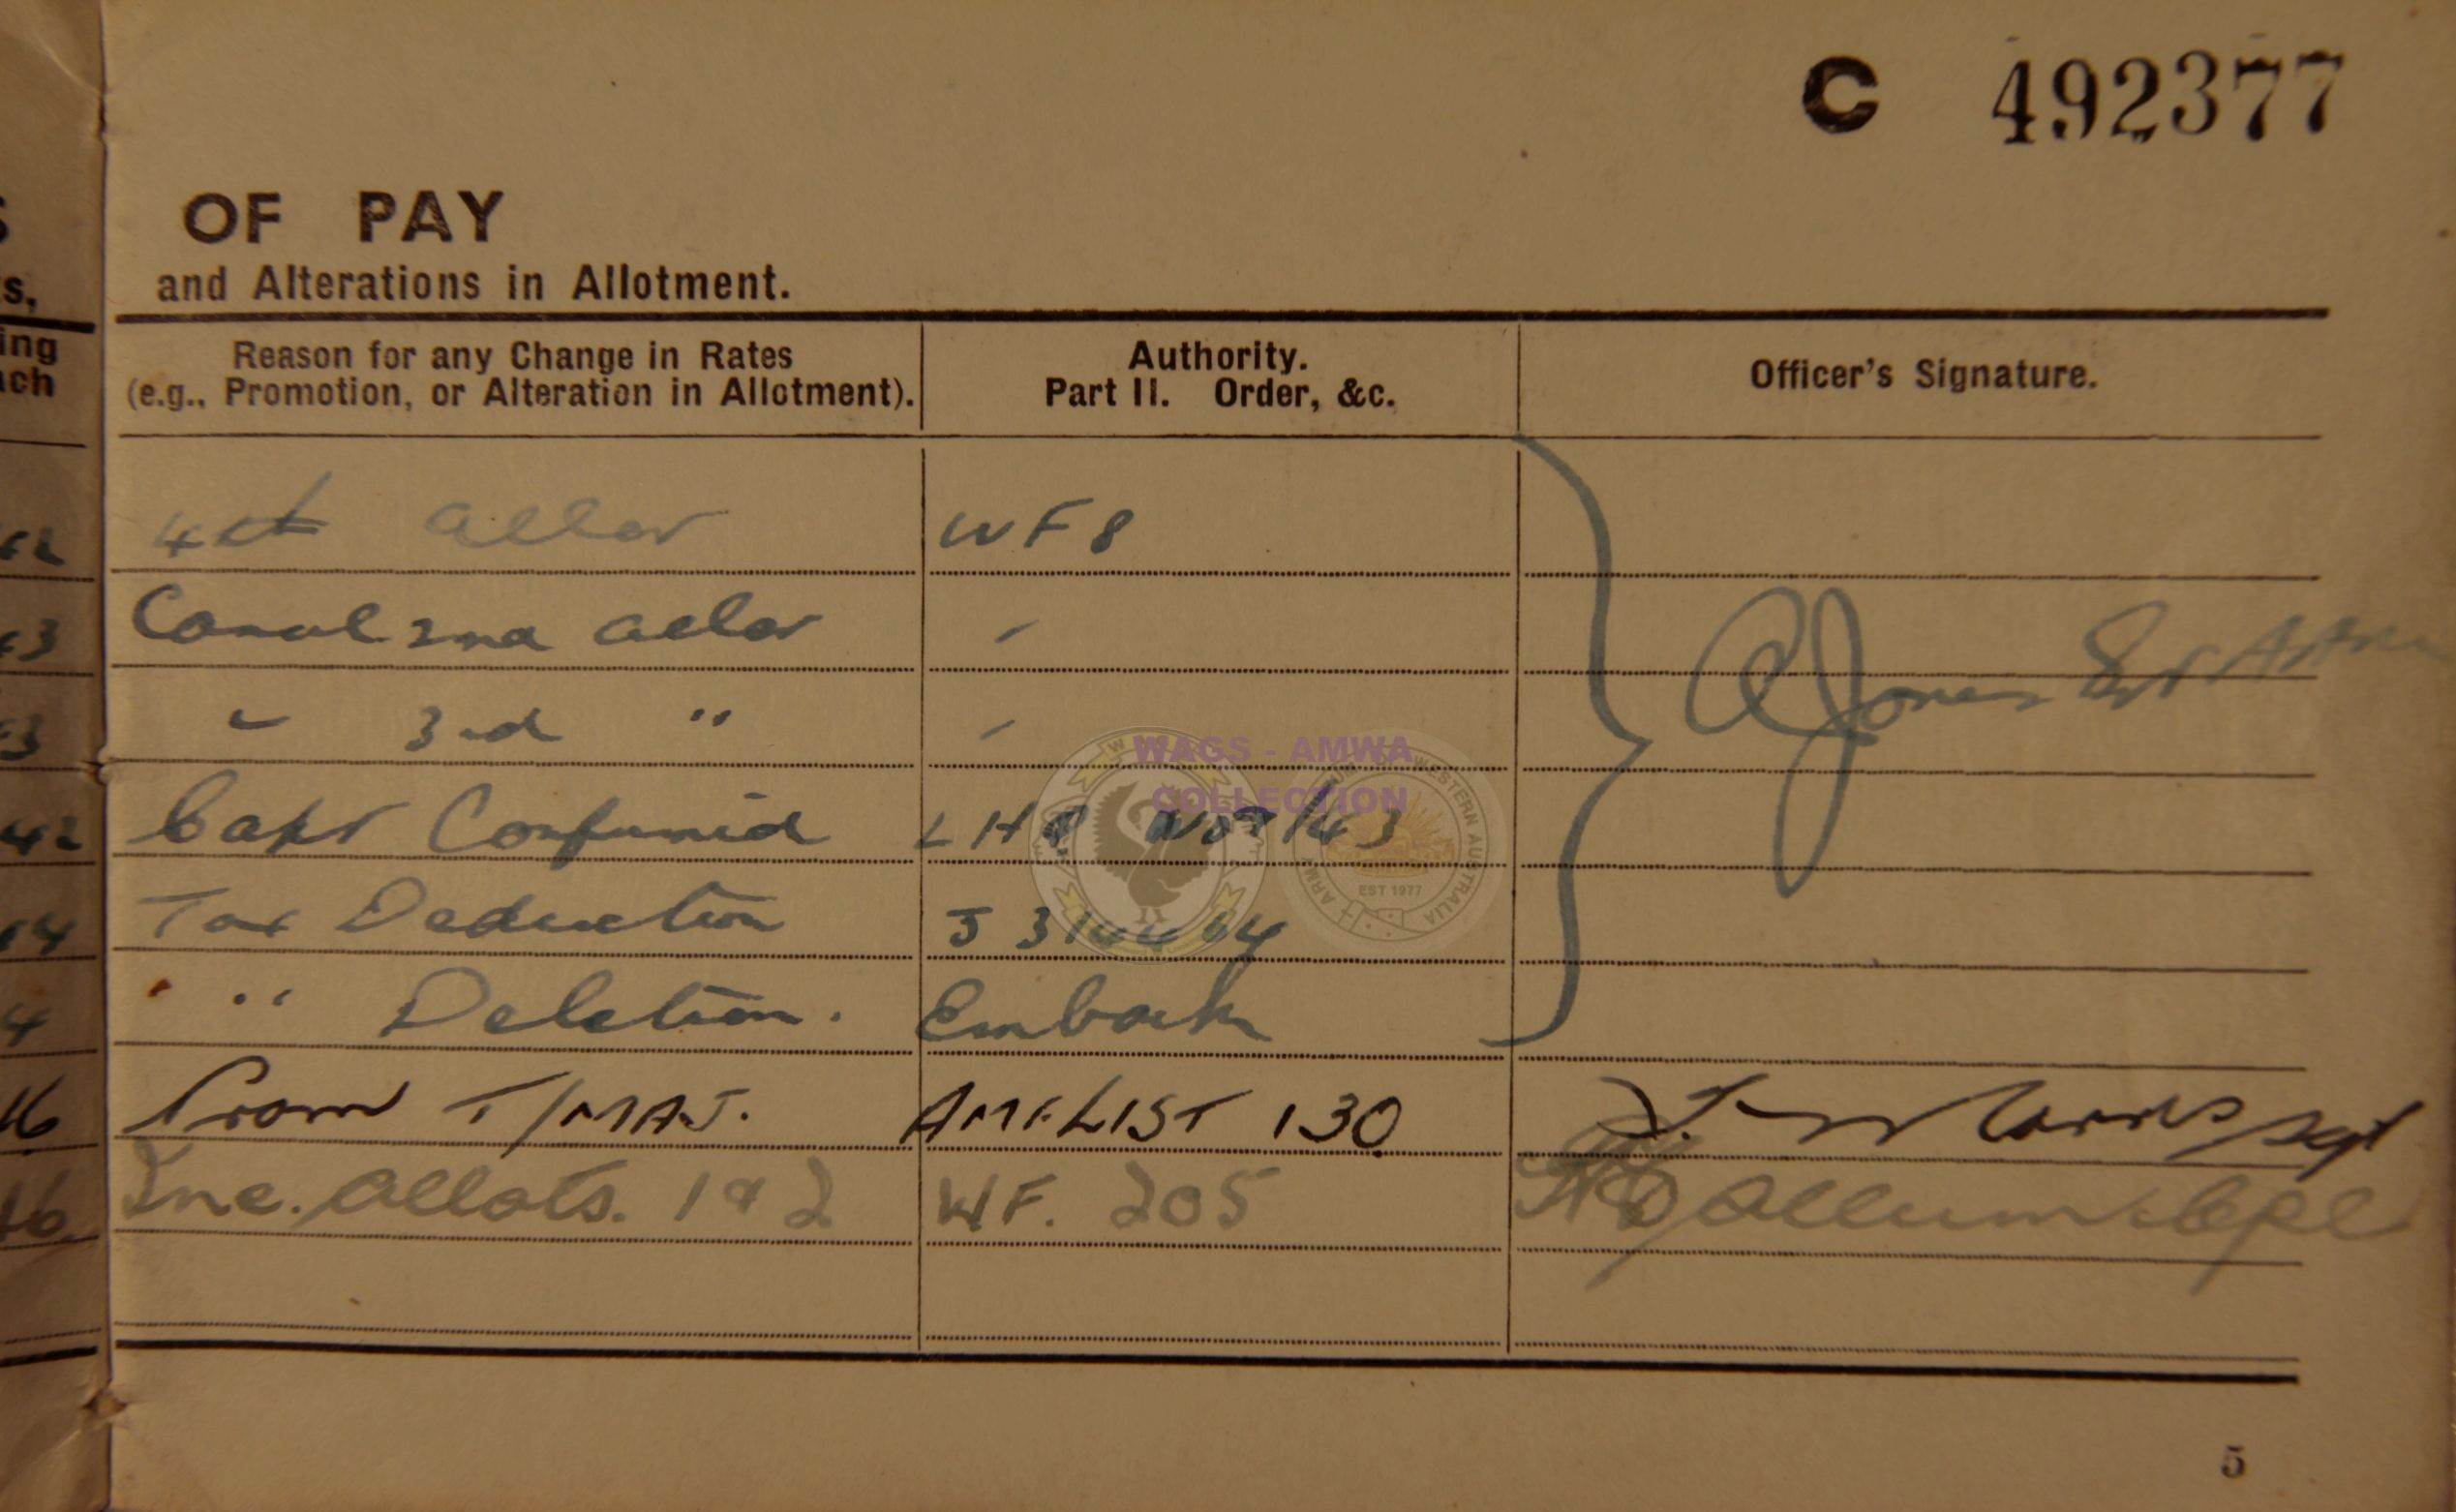 C 492377
OF PAY
s,
and Alterations in Allotment.
ing
ach
Reason for any Change in Rates
(e.g., Promotion, or Alteration in Allotment).
Authority.
Part II. Order, &c.
Officer's Signature.
4th allot WF 8
Cancel 2nd allot
" 3rd "
Capt Confirmed LHQ 163
42
Tax Deduction J
" Deletion. Embark
4
Prom T/MAJ. AMF LIST 130 Sgt
46
Inc. Allots. 1 & 2 WF. 205 Allum Cpl
46
A Jones Sgt
WAGS - AMWA
COLLECTION
WESTERN AUSTRALIA
EST 1977
5